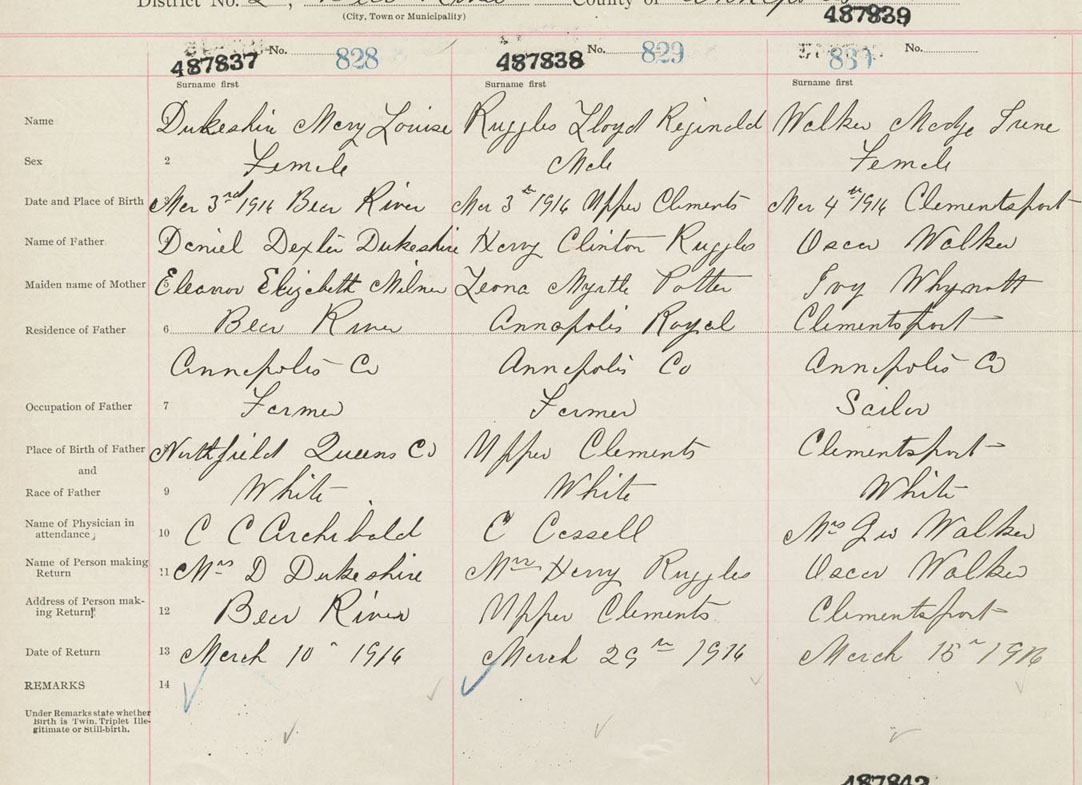 District No. 2, Bear River County of Annapolis
(City, Town or Municipality)
487839
No. 828 No. 829 No. 830
487837 487838
Surname first Surname first Surname first
Name Dukeshire Mary Louise Ruggles Lloyd Reginald Walker Madge Irene
Sex 2 Female Male Female
Date and Place of Birth 3 Mar 3rd 1916 Bear River Mar 3th 1916 Upper Clments Mar 4th 1916 Clementsport
Name of Father 4 Daniel Dexter Dukeshire Harry Clinton Ruggles Oscar Walker
Maiden name of Mother 5 Eleanor Elizabeth Milner Leona Myrtle Potter Ivy Whynott
Residence of Father 6 Bear River Annapolis Royal Clementsport
Annapolis Co Annapolis Co Annapolis Co
Occupation of Father 7 Farmer Farmer Sailor
Place of Birth of Father 8 Northfield Queens Co Upper Clements Clementsport
and
Race of Father 9 White White White
Name of Physician in
attendance 10 C C Archibald E Cassell Mrs Geo Walker
Name of Person making
Return 11 Mrs D Dukeshire Mrs Harry Ruggles Oscar Walker
Address of Person mak-
ing Return 12 Bear River Upper Clements Clementsport
Date of Return 13 March 10th 1916 March 29th 1916 March 15th 1916
REMARKS 14
Under Remarks state whether
Birth is Twin, Triplet Ille-
gitimate or Still-birth.
487842